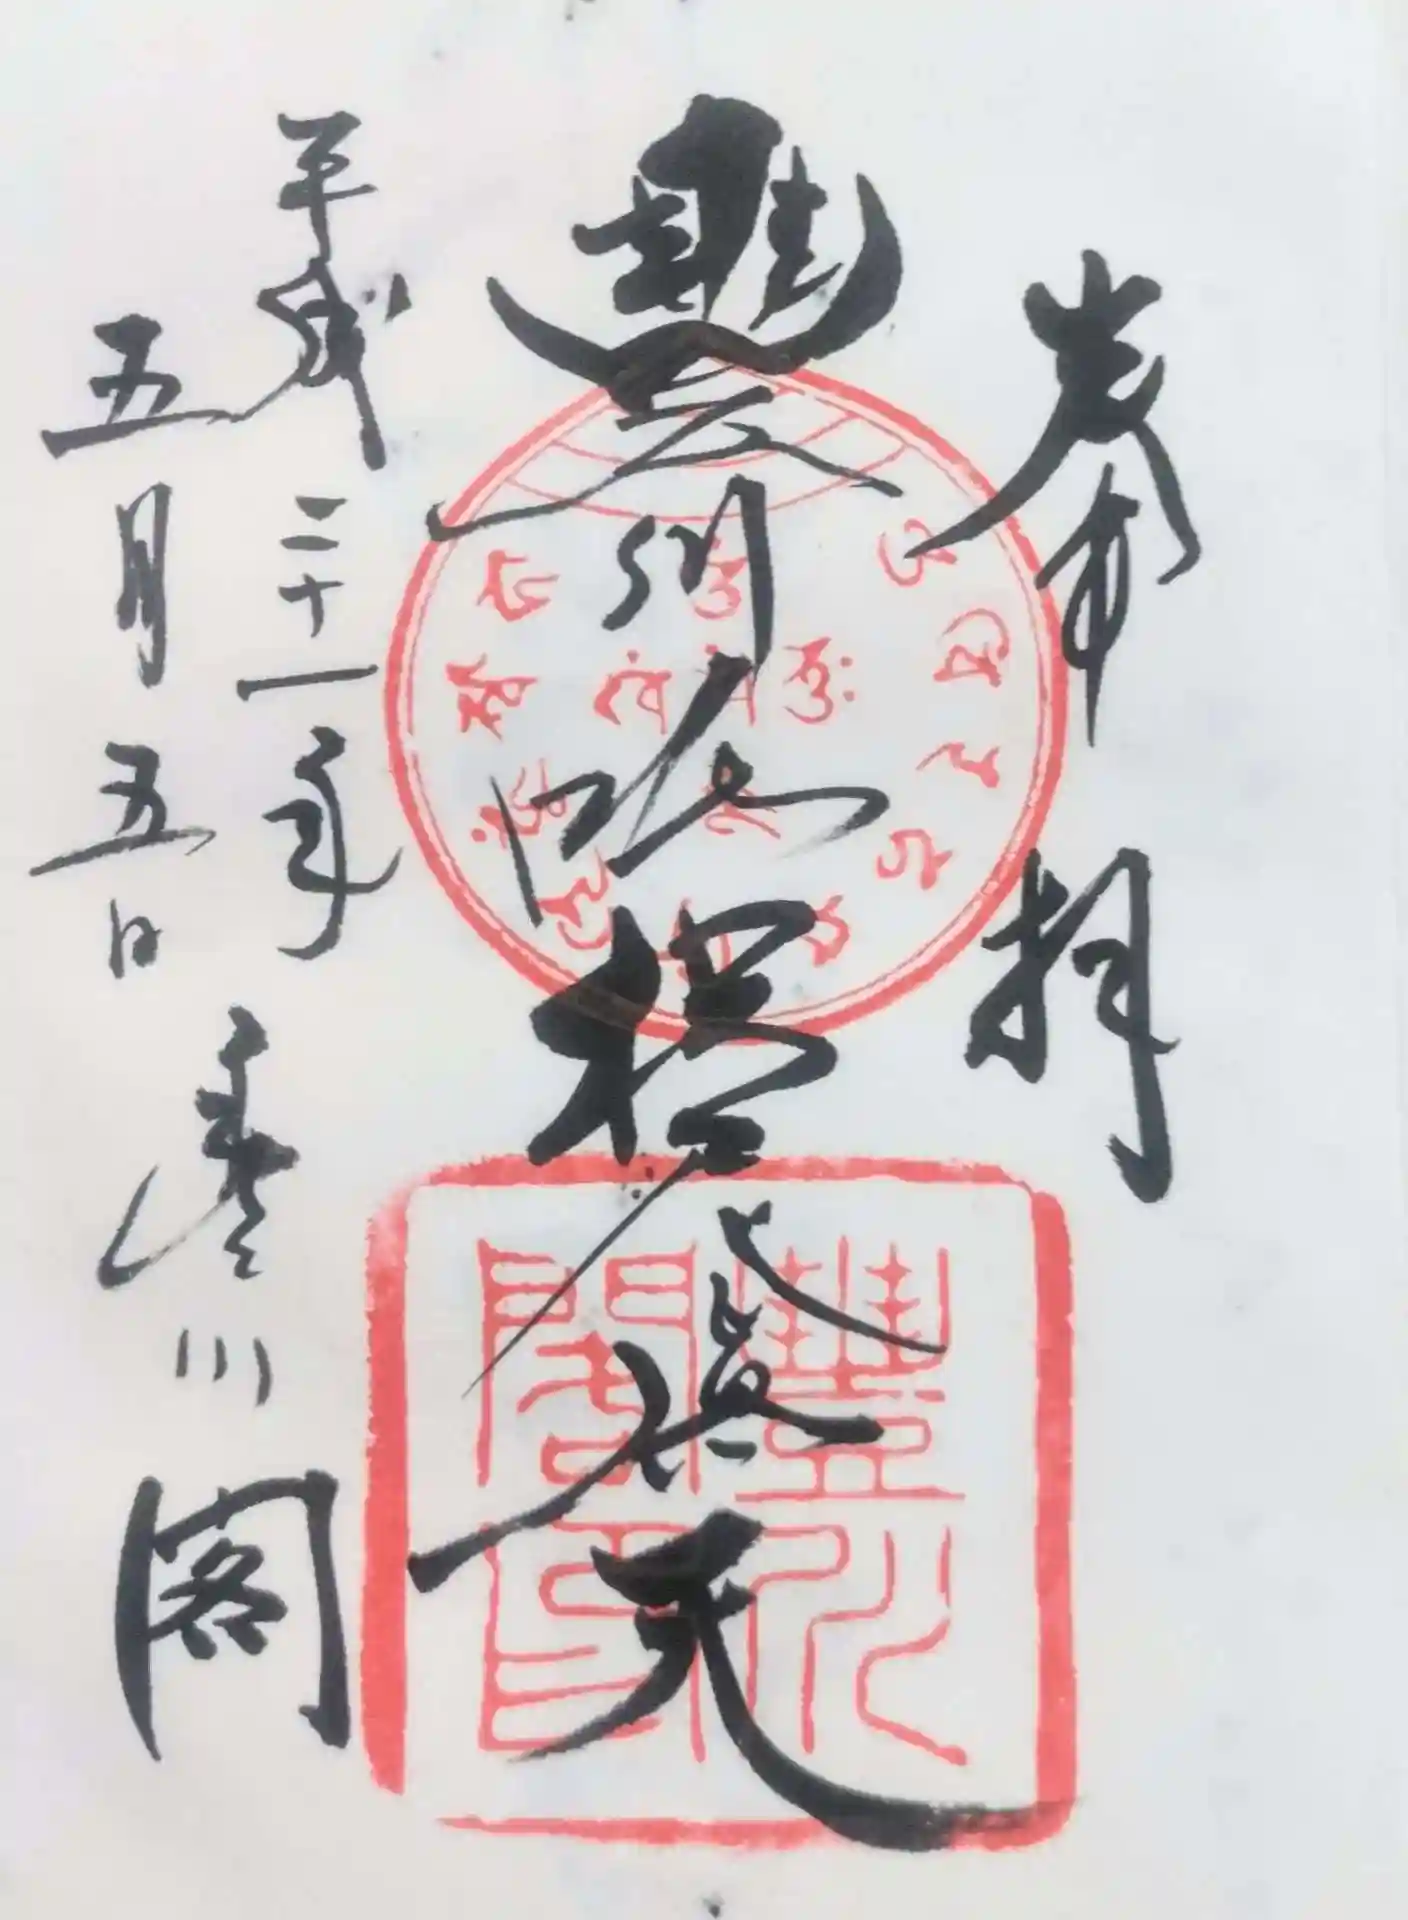 奉拝
豐川吒枳尼眞天
平成二十一年
五月五日
豊川閣
豐川閣印